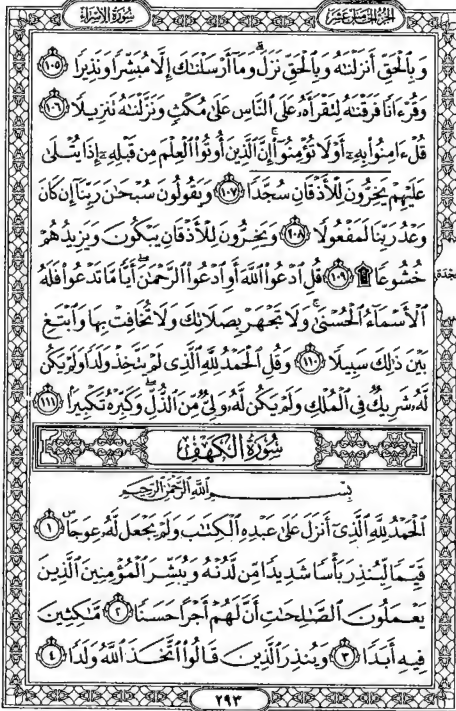 الجزء الخامس عشر
سورة الإسراء
وَبِٱلْحَقِّ أَنزَلْنَٰهُ وَبِٱلْحَقِّ نَزَلَ ۗ وَمَآ أَرْسَلْنَٰكَ إِلَّا مُبَشِّرًا وَنَذِيرًا ١٠٥
وَقُرْءَانًا فَرَقْنَٰهُ لِتَقْرَأَهُۥ عَلَى ٱلنَّاسِ عَلَىٰ مُكْثٍ وَنَزَّلْنَٰهُ تَنزِيلًا ١٠٦
قُلْ ءَامِنُوا۟ بِهِۦٓ أَوْ لَا تُؤْمِنُوٓا۟ ۚ إِنَّ ٱلَّذِينَ أُوتُوا۟ ٱلْعِلْمَ مِن قَبْلِهِۦٓ إِذَا يُتْلَىٰ
عَلَيْهِمْ يَخِرُّونَ لِلْأَذْقَانِ سُجَّدًا ١٠٧ وَيَقُولُونَ سُبْحَٰنَ رَبِّنَآ إِن كَانَ
وَعْدُ رَبِّنَا لَمَفْعُولًا ١٠٨ وَيَخِرُّونَ لِلْأَذْقَانِ يَبْكُونَ وَيَزِيدُهُمْ
خُشُوعًا ۩ ١٠٩ قُلِ ٱدْعُوا۟ ٱللَّهَ أَوِ ٱدْعُوا۟ ٱلرَّحْمَٰنَ ۖ أَيًّا مَّا تَدْعُوا۟ فَلَهُ
ٱلْأَسْمَآءُ ٱلْحُسْنَىٰ ۚ وَلَا تَجْهَرْ بِصَلَاتِكَ وَلَا تُخَافِتْ بِهَا وَٱبْتَغِ
بَيْنَ ذَٰلِكَ سَبِيلًا ١١٠ وَقُلِ ٱلْحَمْدُ لِلَّهِ ٱلَّذِى لَمْ يَتَّخِذْ وَلَدًا وَلَمْ يَكُن
لَّهُۥ شَرِيكٌ فِى ٱلْمُلْكِ وَلَمْ يَكُن لَّهُۥ وَلِىٌّ مِّنَ ٱلذُّلِّ ۖ وَكَبِّرْهُ تَكْبِيرًۢا ١١١
سُورَةُ الْكَهْفِ
بِسْمِ ٱللَّهِ ٱلرَّحْمَٰنِ ٱلرَّحِيمِ
ٱلْحَمْدُ لِلَّهِ ٱلَّذِىٓ أَنزَلَ عَلَىٰ عَبْدِهِ ٱلْكِتَٰبَ وَلَمْ يَجْعَل لَّهُۥ عِوَجَاۜ ١
قَيِّمًا لِّيُنذِرَ بَأْسًا شَدِيدًا مِّن لَّدُنْهُ وَيُبَشِّرَ ٱلْمُؤْمِنِينَ ٱلَّذِينَ
يَعْمَلُونَ ٱلصَّٰلِحَٰتِ أَنَّ لَهُمْ أَجْرًا حَسَنًا ٢ مَّٰكِثِينَ
فِيهِ أَبَدًا ٣ وَيُنذِرَ ٱلَّذِينَ قَالُوا۟ ٱتَّخَذَ ٱللَّهُ وَلَدًا ٤
٢٩٣